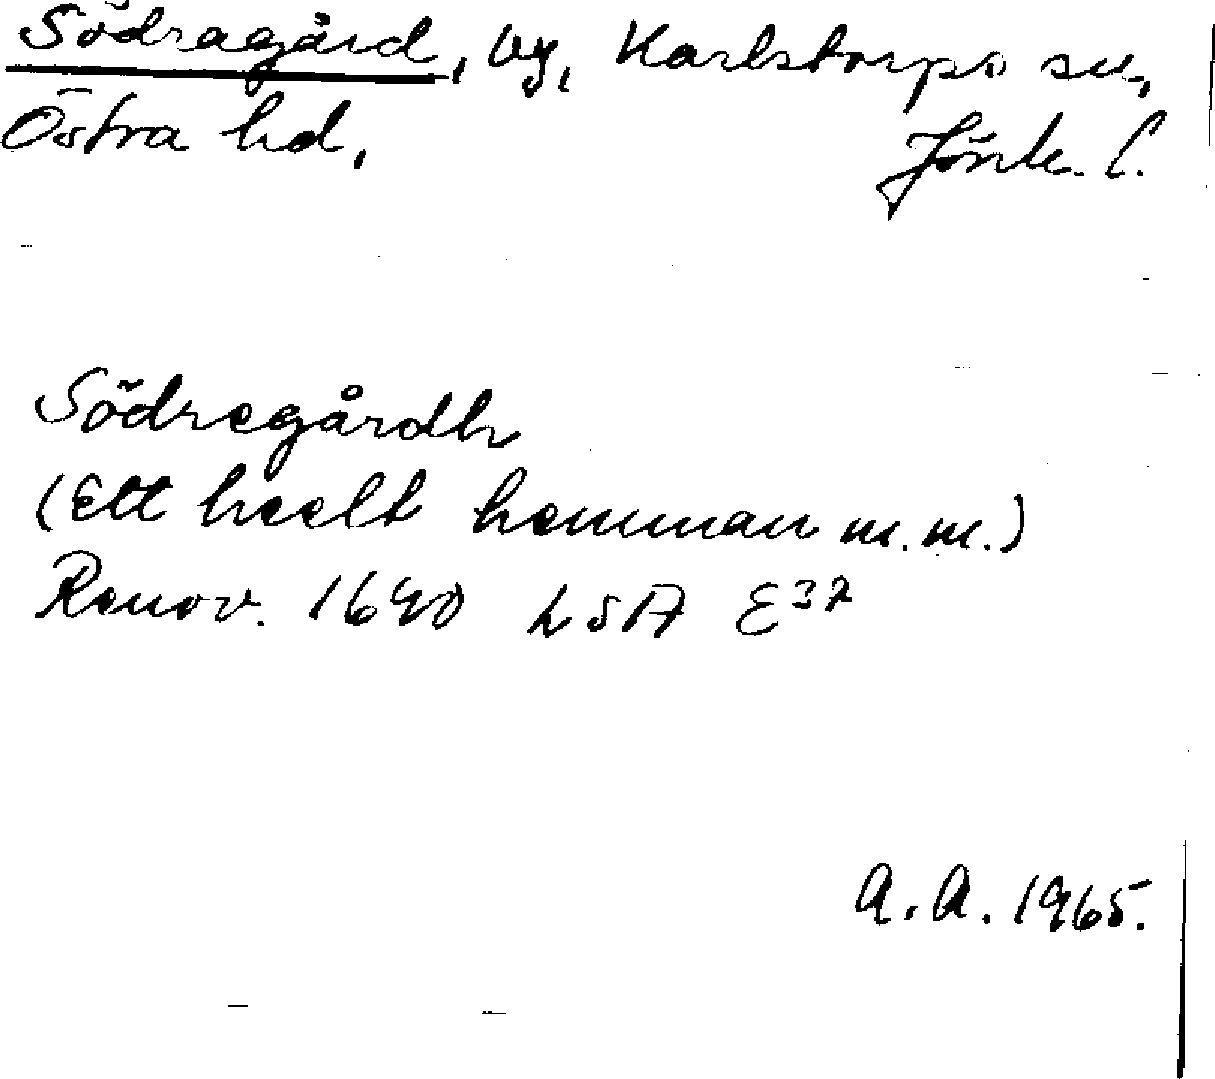 Södragård, by, Karlstorps sn,
Östra hd,
Jönk. l.
Södregårdh
(Ett heelt hemman m.m.)
Renov. 1690 LSA E37
A.A. 1965.